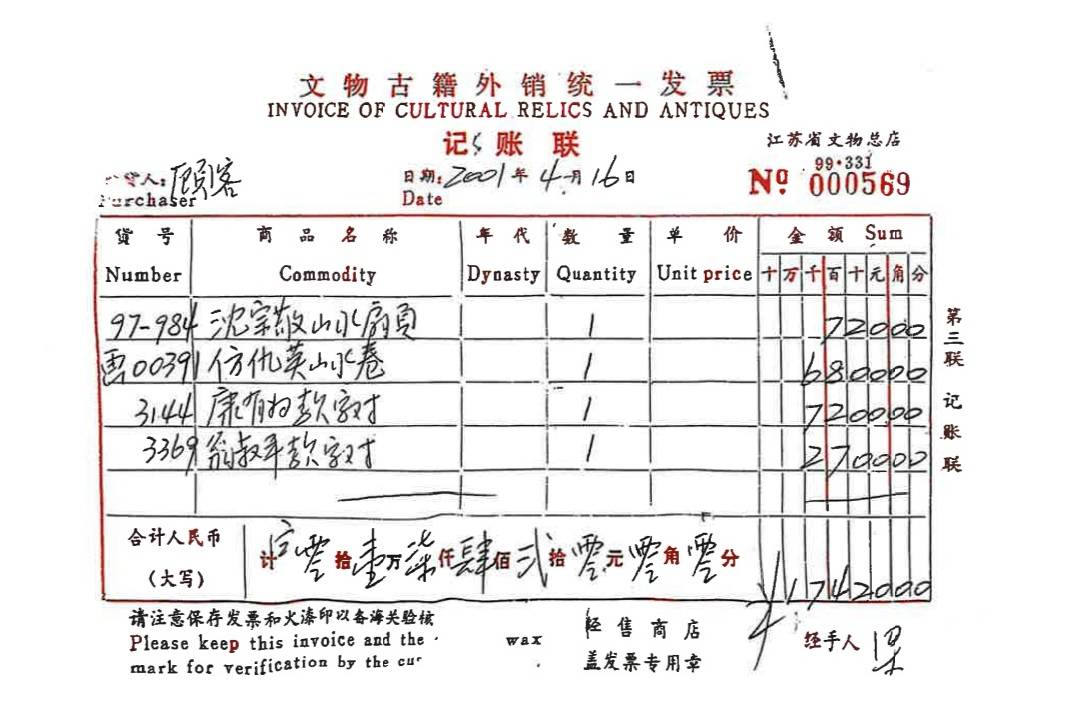 文物古籍外销统一发票
INVOICE OF CULTURAL RELICS AND ANTIQUES
记账联
江苏省文物总店
99·331
Nº 000569
货人：顾客
Purchaser
日期：2001年4月16日
Date
货号 商品名称 年代 数量 单价 金额 Sum
Number Commodity Dynasty Quantity Unit price 十万千百十元角分
97-984 沈宗敬山水扇页 1 72000
曹00391 仿仇英山水卷 1 680000
3144 康有为款字对 1 720000
3369 翁叔平款字对 1 270000
合计人民币
（大写）
计零拾壹万柒仟肆佰贰拾零元零角零分 ¥1742000
第三联 记账联
请注意保存发票和火漆印以备海关验核
Please keep this invoice and the wax
mark for verification by the cu
经售商店
盖发票专用章
经手人 梁